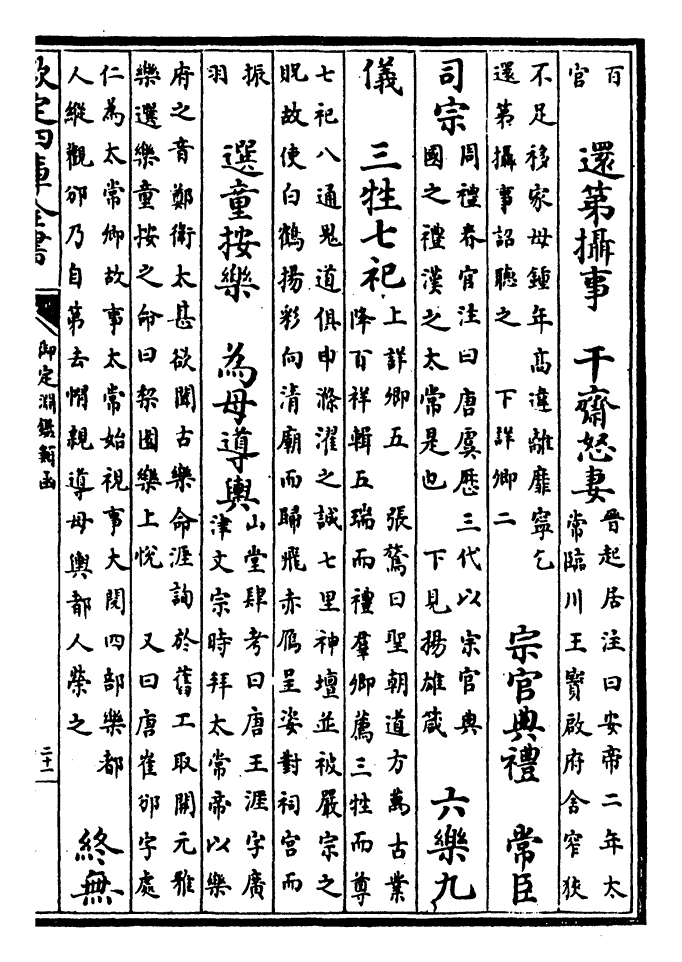 百
官
還第攝事　干齋怒妻
晉起居注曰安帝二年太
常臨川王寶啟府舍窄狹
不足移家母鍾年高違離靡寧乞
還第攝事詔聽之　下詳卿二
宗官典禮　常臣
司宗
周禮春官注曰唐虞歷三代以宗官典
國之禮漢之太常是也　下見揚雄箴
六樂九
儀　三牲七祀
上詳卿五　張鷟曰聖朝道方萬古業
降百祥輯五瑞而禮羣卿薦三牲而尊
七祀八通鬼道俱申滌濯之誠七里神壇並被嚴宗之
貺故使白鶴揚彩向清廟而歸飛赤鴈呈姿對祠宮而
振
羽
選童按樂　為母導輿
山堂肆考曰唐王涯字廣
津文宗時拜太常帝以樂
府之音鄭衛太甚欲聞古樂命涯詢於舊工取開元雅
樂選樂童按之命曰棃園樂上悅　又曰唐崔邠字處
仁為太常卿故事太常始視事大閱四部樂都
人縱觀邠乃自第去㡌親導母輿都人榮之
終無
欽定四庫全書
御定淵鑑類函
二十一